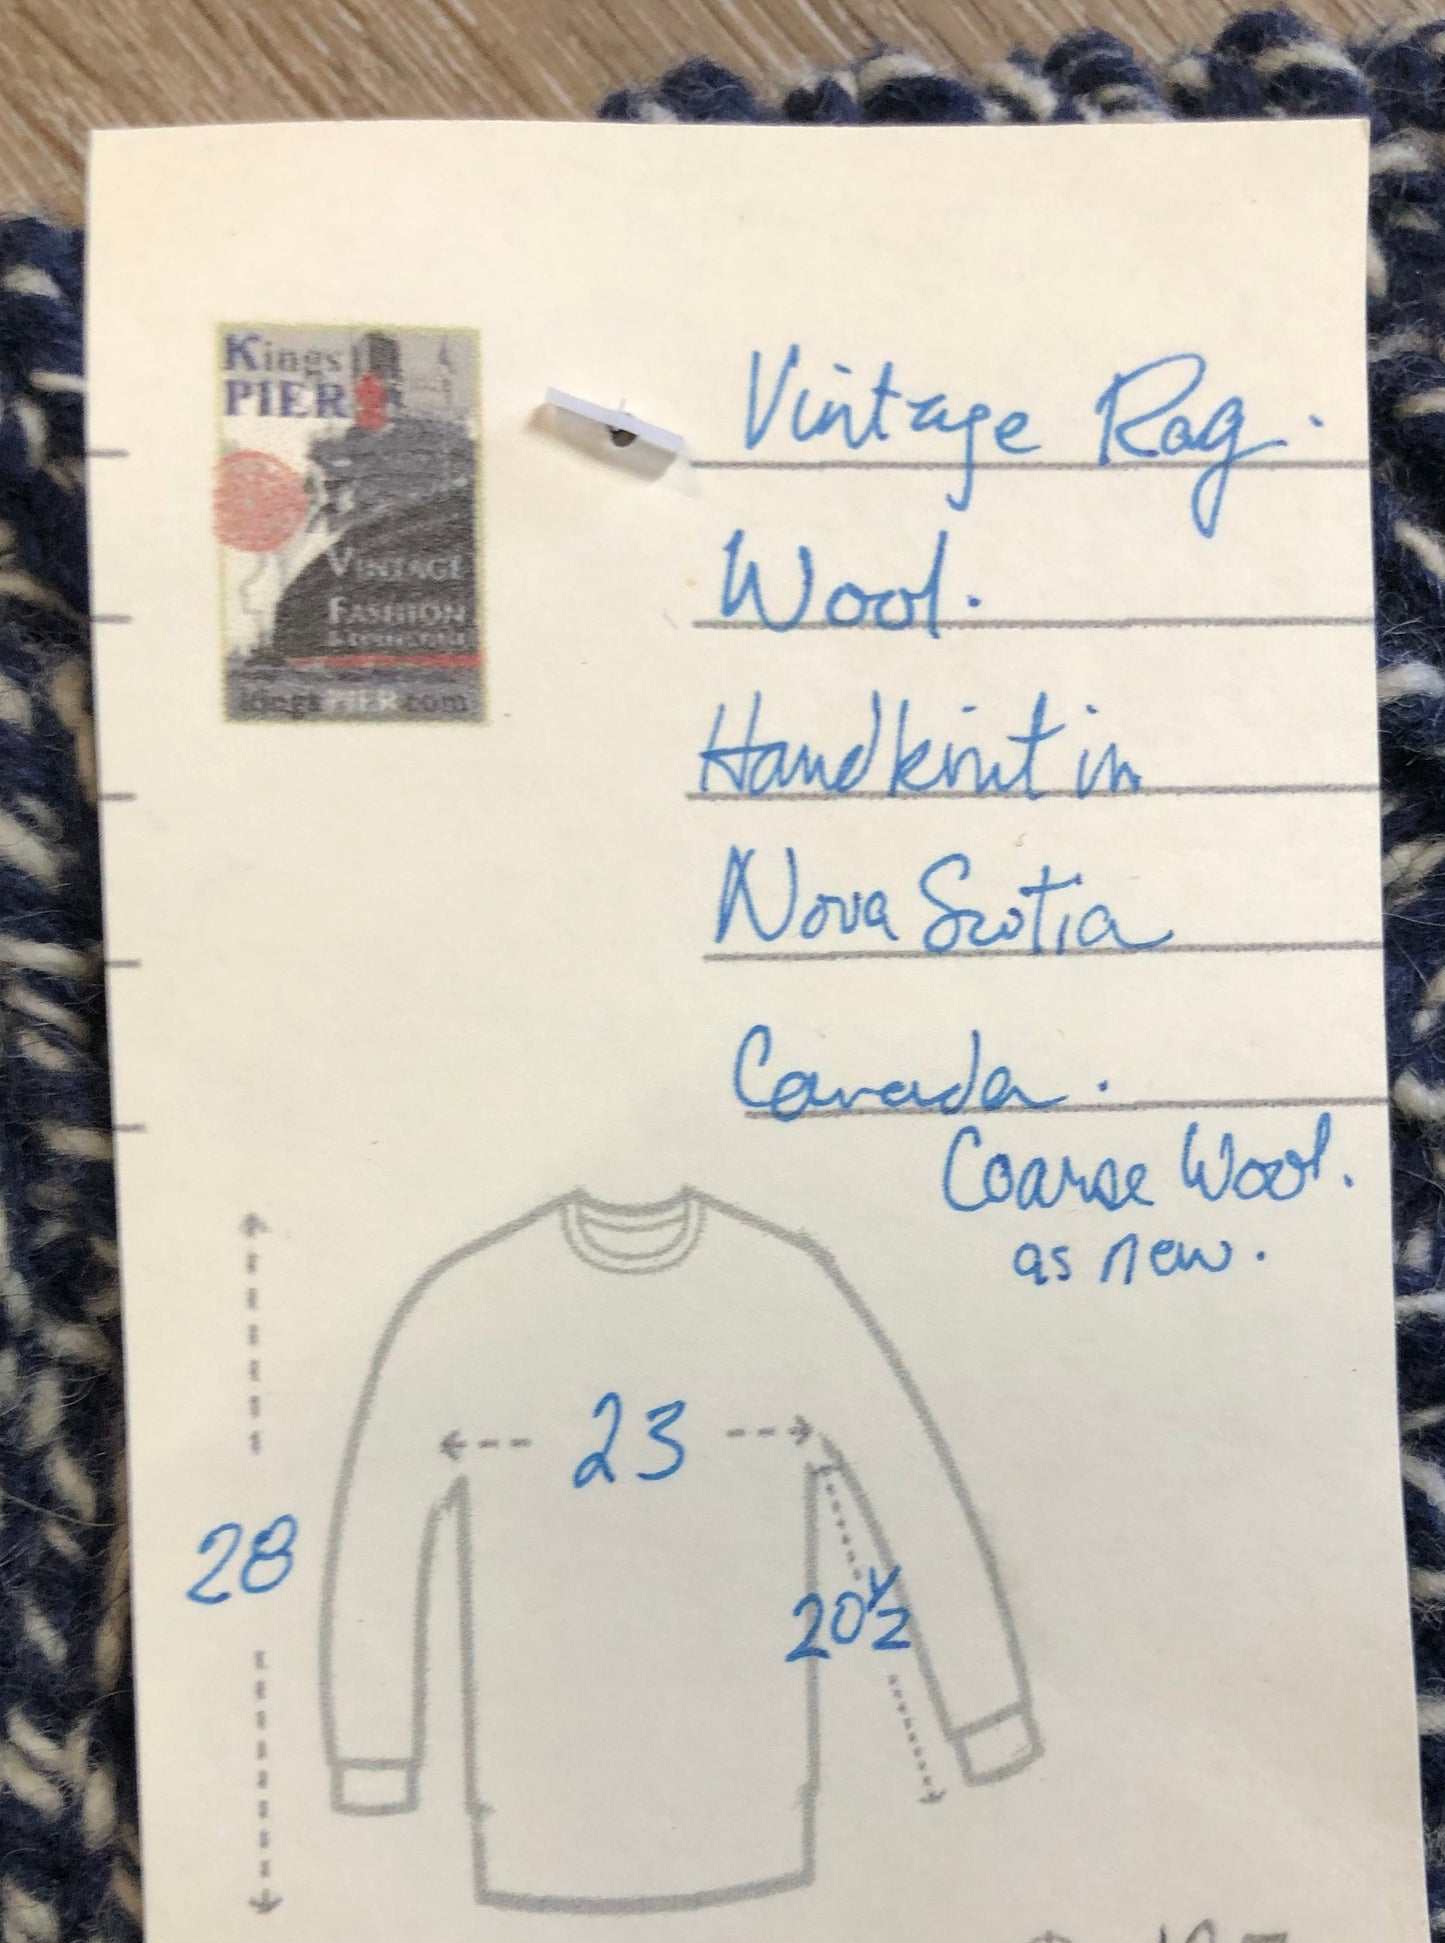 Kings
PIER
VINTAGE
FASHION
kingsPIER.com
Vintage Rag.
Wool.
Handknit in
Nova Scotia
Canada.
Coarse Wool.
as new.
23
28
20½